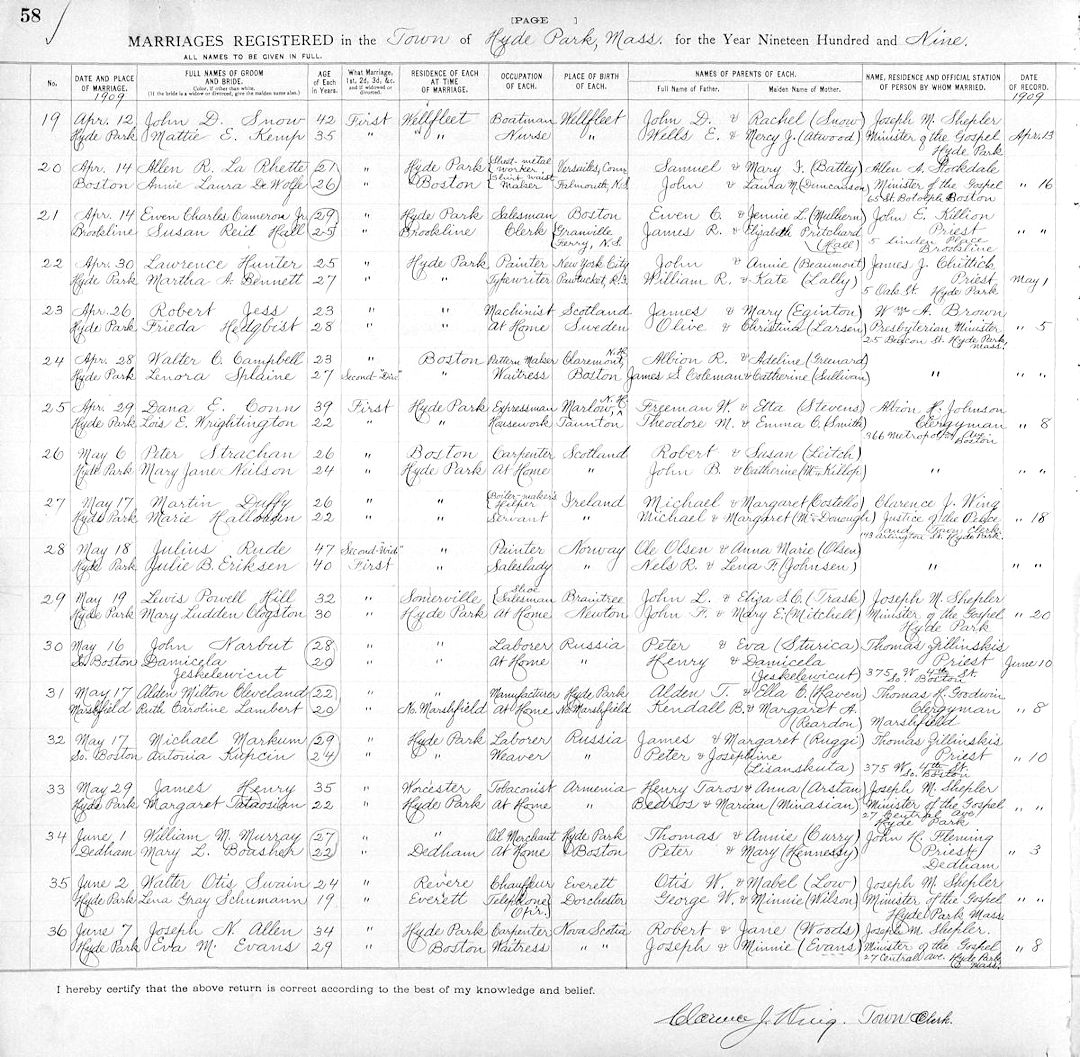 58
[PAGE ]
MARRIAGES REGISTERED in the Town of Hyde Park, Mass. for the Year Nineteen Hundred and Nine.
ALL NAMES TO BE GIVEN IN FULL.
No. DATE AND PLACE OF MARRIAGE. 1909 FULL NAMES OF GROOM AND BRIDE. Color, if other than white. (If the bride is a widow or divorced, give the maiden name also.) AGE of Each in Years. What Marriage, 1st, 2d, 3d, &c. and if widowed or divorced. RESIDENCE OF EACH AT TIME OF MARRIAGE. OCCUPATION OF EACH. PLACE OF BIRTH OF EACH. NAMES OF PARENTS OF EACH. Full Name of Father. Maiden Name of Mother. NAME, RESIDENCE AND OFFICIAL STATION OF PERSON BY WHOM MARRIED. DATE OF RECORD. 1909
19 Apr. 12 John D. Snow 42 First Wellfleet Boatman Wellfleet John D. & Rachel (Snow) Joseph M. Shepler
Hyde Park Mattie E. Kemp 35 " " Nurse " Wells E. & Mercy J. (Atwood) Minister of the Gospel Apr. 13
Hyde Park
20 Apr. 14 Allen R. La Rhette 21 " Hyde Park Sheet-metal Worker Versailles, Conn Samuel & Mary F. (Battey) Allen A. Stockdale
Boston Annie Laura De Wolfe 26 " Boston Shirt waist Maker Falmouth, N.S. John & Laura M. (Duncanson) Minister of the Gospel " 16
65 St. Botolph Boston
21 Apr. 14 Ewen Charles Cameron Jr. 29 " Hyde Park Salesman Boston Ewen C. & Jennie L. (Mulhern) John E. Killion
Brookline Susan Reid Hall 25 " Brookline Clerk Granville Ferry, N.S. James R. & Elizabeth Pritchard (Hall) Priest " "
5 Linden Place
Brookline
22 Apr. 30 Lawrence Hunter 25 " Hyde Park Painter New York City John & Annie (Beaumont) James J. Chittick
Hyde Park Martha A. Bennett 27 " " Typewriter Pawtucket, R.I. William R. & Kate (Lally) Priest May 1
5 Oak St. Hyde Park
23 Apr. 26 Robert Jess 23 " " Machinist Scotland James & Mary (Eginton) Wm A. Brown
Hyde Park Frieda Hedqbist 28 " " At Home Sweden Olive & Christina (Larsen) Presbyterian Minister " 5
25 Beacon St. Hyde Park Mass.
24 Apr. 28 Walter C. Campbell 23 " Boston Pattern Maker Claremont, N.H. Albion R. & Adeline (Greenard)
Hyde Park Lenora Splaine 27 Second-"Div." " Waitress Boston James S. Coleman & Catherine (Sullivan) " " "
25 Apr. 29 Dana E. Conn 39 First Hyde Park Expressman Marlow, N.H. Freeman W. & Etta (Stevens) Albion H. Johnson
Hyde Park Lois E. Wrightington 22 " " Housework Taunton Theodore M. & Emma C. (Smith) Clergyman " 8
366 Metropolitan Av. Boston
26 May 6 Peter Strachan 26 " Boston Carpenter Scotland Robert & Susan (Leitch)
Hyde Park Mary Jane Neilson 24 " Hyde Park At Home " John B. & Catherine (McKillop) " " "
27 May 17 Martin Duffy 26 " " Boiler-maker's Helper Ireland Michael & Margaret (Costello) Clarence J. Wing
Hyde Park Marie Halloren 22 " " Servant " Michael & Margaret (McDonough) Justice of the Peace " 18
and Town Clerk
143 Arlington St. Hyde Park
28 May 18 Julius Rude 47 Second-"Wid" " Painter Norway Ole Olsen & Anna Marie (Olsen)
Hyde Park Julie B. Eriksen 40 First " Saleslady " Nels R. & Lena F. (Johnsen) " " "
29 May 19 Lewis Powell Hill 32 " Somerville Shoe Salesman Braintree John L. & Eliza S.C. (Trask) Joseph M. Shepler
Hyde Park Mary Ludden Clogston 30 " Hyde Park At Home Newton John F. & Mary E. (Mitchell) Minister of the Gospel " 20
Hyde Park
30 May 16 John Narbut 28 " " Laborer Russia Peter & Eva (Sturica) Thomas Zillinskis
So. Boston Damicela 20 " " At Home " Henry & Damicela Priest June 10
Jeskelewicut (Jeskelewicut) 375 W. 4th St. So. Boston
31 May 17 Alden Milton Cleveland 22 " " Manufacturer Hyde Park Alden T. & Ella C. (Haven) Thomas H. Godwin
Marshfield Ruth Caroline Lambert 20 " No. Marshfield At Home No. Marshfield Kendall B. & Margaret A. (Reardon) Clergyman " 8
Marshfield
32 May 17 Michael Markum 29 " Hyde Park Laborer Russia James & Margaret (Ruggi) Thomas Zillinskis
So. Boston Antonia Kupcin 24 " " Weaver " Peter & Josephine (Lisanskuta) Priest " 10
375 W. 4th St. So. Boston
33 May 29 James Henry 35 " Worcester Tobacconist Armenia Henry Taros & Anna (Arstan) Joseph M. Shepler
Hyde Park Margaret Tataosian 22 " Hyde Park At Home " Bedros & Marian (Minasian) Minister of the Gospel " "
27 Central Ave. Hyde Park
34 June 1 William M. Murray 27 " " Oil Merchant Hyde Park Thomas & Annie (Curry) John H. Fleming
Dedham Mary L. Boasher 22 " Dedham At Home Boston Peter & Mary (Hennessy) Priest " 3
Dedham
35 June 2 Walter Otis Swain 24 " Revere Chauffeur Everett Otis W. & Mabel (Low) Joseph M. Shepler
Hyde Park Lena Gray Schumann 19 " Everett Telephone Opr. Dorchester George W. & Minnie (Wilson) Minister of the Gospel " "
Hyde Park Mass.
36 June 7 Joseph N. Allen 34 " Hyde Park Carpenter Nova Scotia Robert & Jane (Woods) Joseph M. Shepler.
Hyde Park Eva M. Evans 29 " Boston Waitress " " Joseph & Minnie (Evans) Minister of the Gospel " 8
27 Central Ave. Hyde Park Mass.
I hereby certify that the above return is correct according to the best of my knowledge and belief.
Clarence J. Wing. Town Clerk.